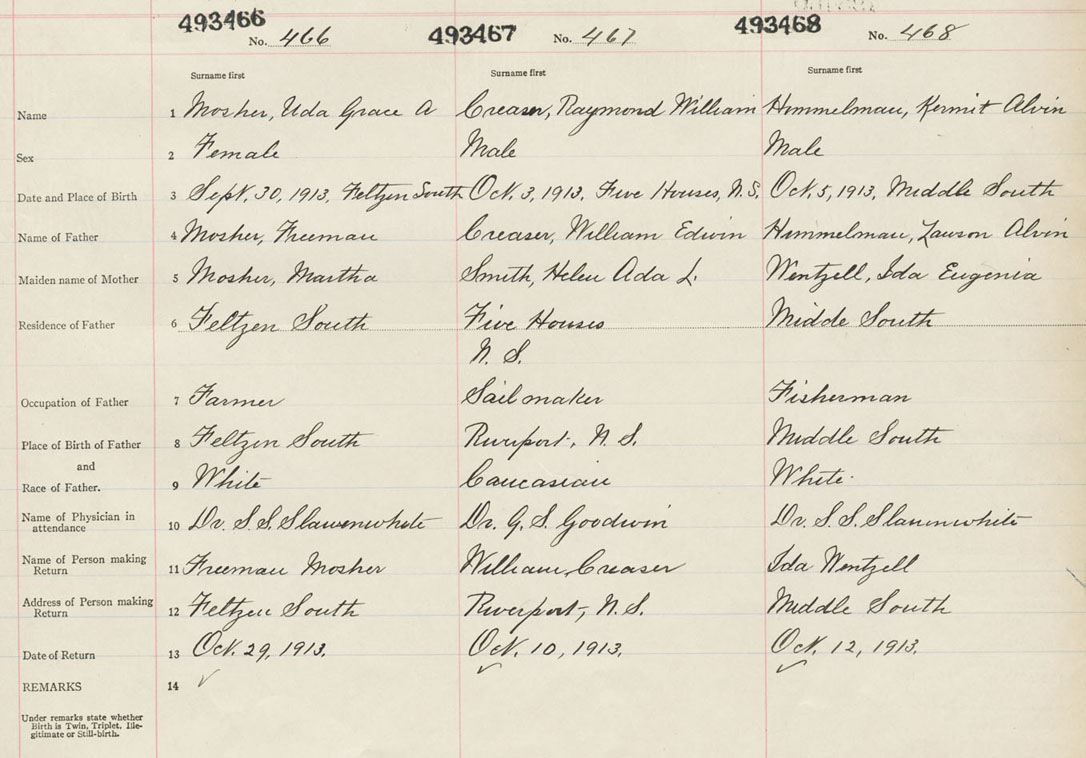 493466 No. 466 493467 No. 467 493468 No. 468
Surname first Surname first Surname first
Name 1 Mosher, Uda Grace A Creaser, Raymond William Himmelman, Kermit Alvin
Sex 2 Female Male Male
Date and Place of Birth 3 Sept. 30, 1913, Feltzen South Oct. 3, 1913. Five Houses, N.S. Oct. 5, 1913, Middle South
Name of Father 4 Mosher, Freeman Creaser, William Edwin Himmelman, Lawson Alvin
Maiden name of Mother 5 Mosher, Martha Smith, Helen Ada L. Wentzell, Ida Eugenia
Residence of Father 6 Feltzen South Five Houses Midde South
N. S.
Occupation of Father 7 Farmer Sail maker Fisherman
Place of Birth of Father 8 Feltzen South Riverport, N. S. Middle South
and
Race of Father. 9 White Caucasian White
Name of Physician in
attendance 10 Dr. S. S. Slauenwhite Dr. G. S. Goodwin Dr. S. S. Slauenwhite
Name of Person making
Return 11 Freeman Mosher William Creaser Ida Wentzell
Address of Person making
Return 12 Feltzen South Riverport, N. S. Middle South
Date of Return 13 Oct. 29, 1913. Oct. 10, 1913. Oct. 12, 1913.
REMARKS 14
Under remarks state whether
Birth is Twin, Triplet, Ille-
gitimate or Still-birth.